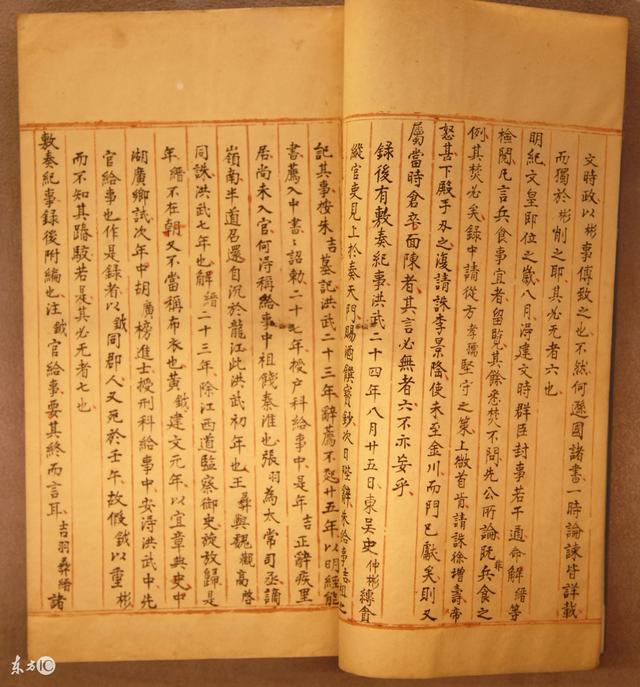 文時政以彬事傳致之也不然何遜國諸書一時論諫皆詳載
而獨於彬削之耶其必无者六也
明紀文皇即位之歲八月得建文時群臣封事若干通命解縉等
檢閱凡言兵食事宜者留覽其餘悉焚不問先公所論既非兵食之
例其焚必矣錄中請從方孝孺堅守之策上微首肯請誅徐增壽帝
怒甚下殿手刃之復請誅李景隆使未至金川而門已獻矣則又
屬當時倉卒面陳者其言必無者六不亦妄乎
錄後有敷奏紀事洪武二十四年八月廿五日東吳史仲彬縛貪
縱官吏見上於奉天門賜酒饌寳鈔次日陛辭朱給事吉祖之
記其事按朱吉墓記洪武二十三年辭薦不起廿五年以明經能
書薦入中書々詔勅二十七年授戶科給事中是年吉正辭疾里
居尚未入官何得稱給事中祖餞秦淮也張羽為太常司丞謫
嶺南半道召還自沉於龍江此洪武初年也王彝與魏觀高啓
同誅洪武七年也解縉二十三年除江西道監察御史旋放歸是
年縉不在朝又不當稱布衣也黃鉞建文元年以宜章典史中
湖廣鄉試次年中胡廣榜進士授刑科給事中安得洪武中先
官給事也作是錄者以鉞同郡人又死於壬午故假鉞以重彬
而不知其踳駁若是其必无者七也
敷奏紀事錄後附編也注鉞官給事要其終而言耳吉羽彝縉諸
东方IC